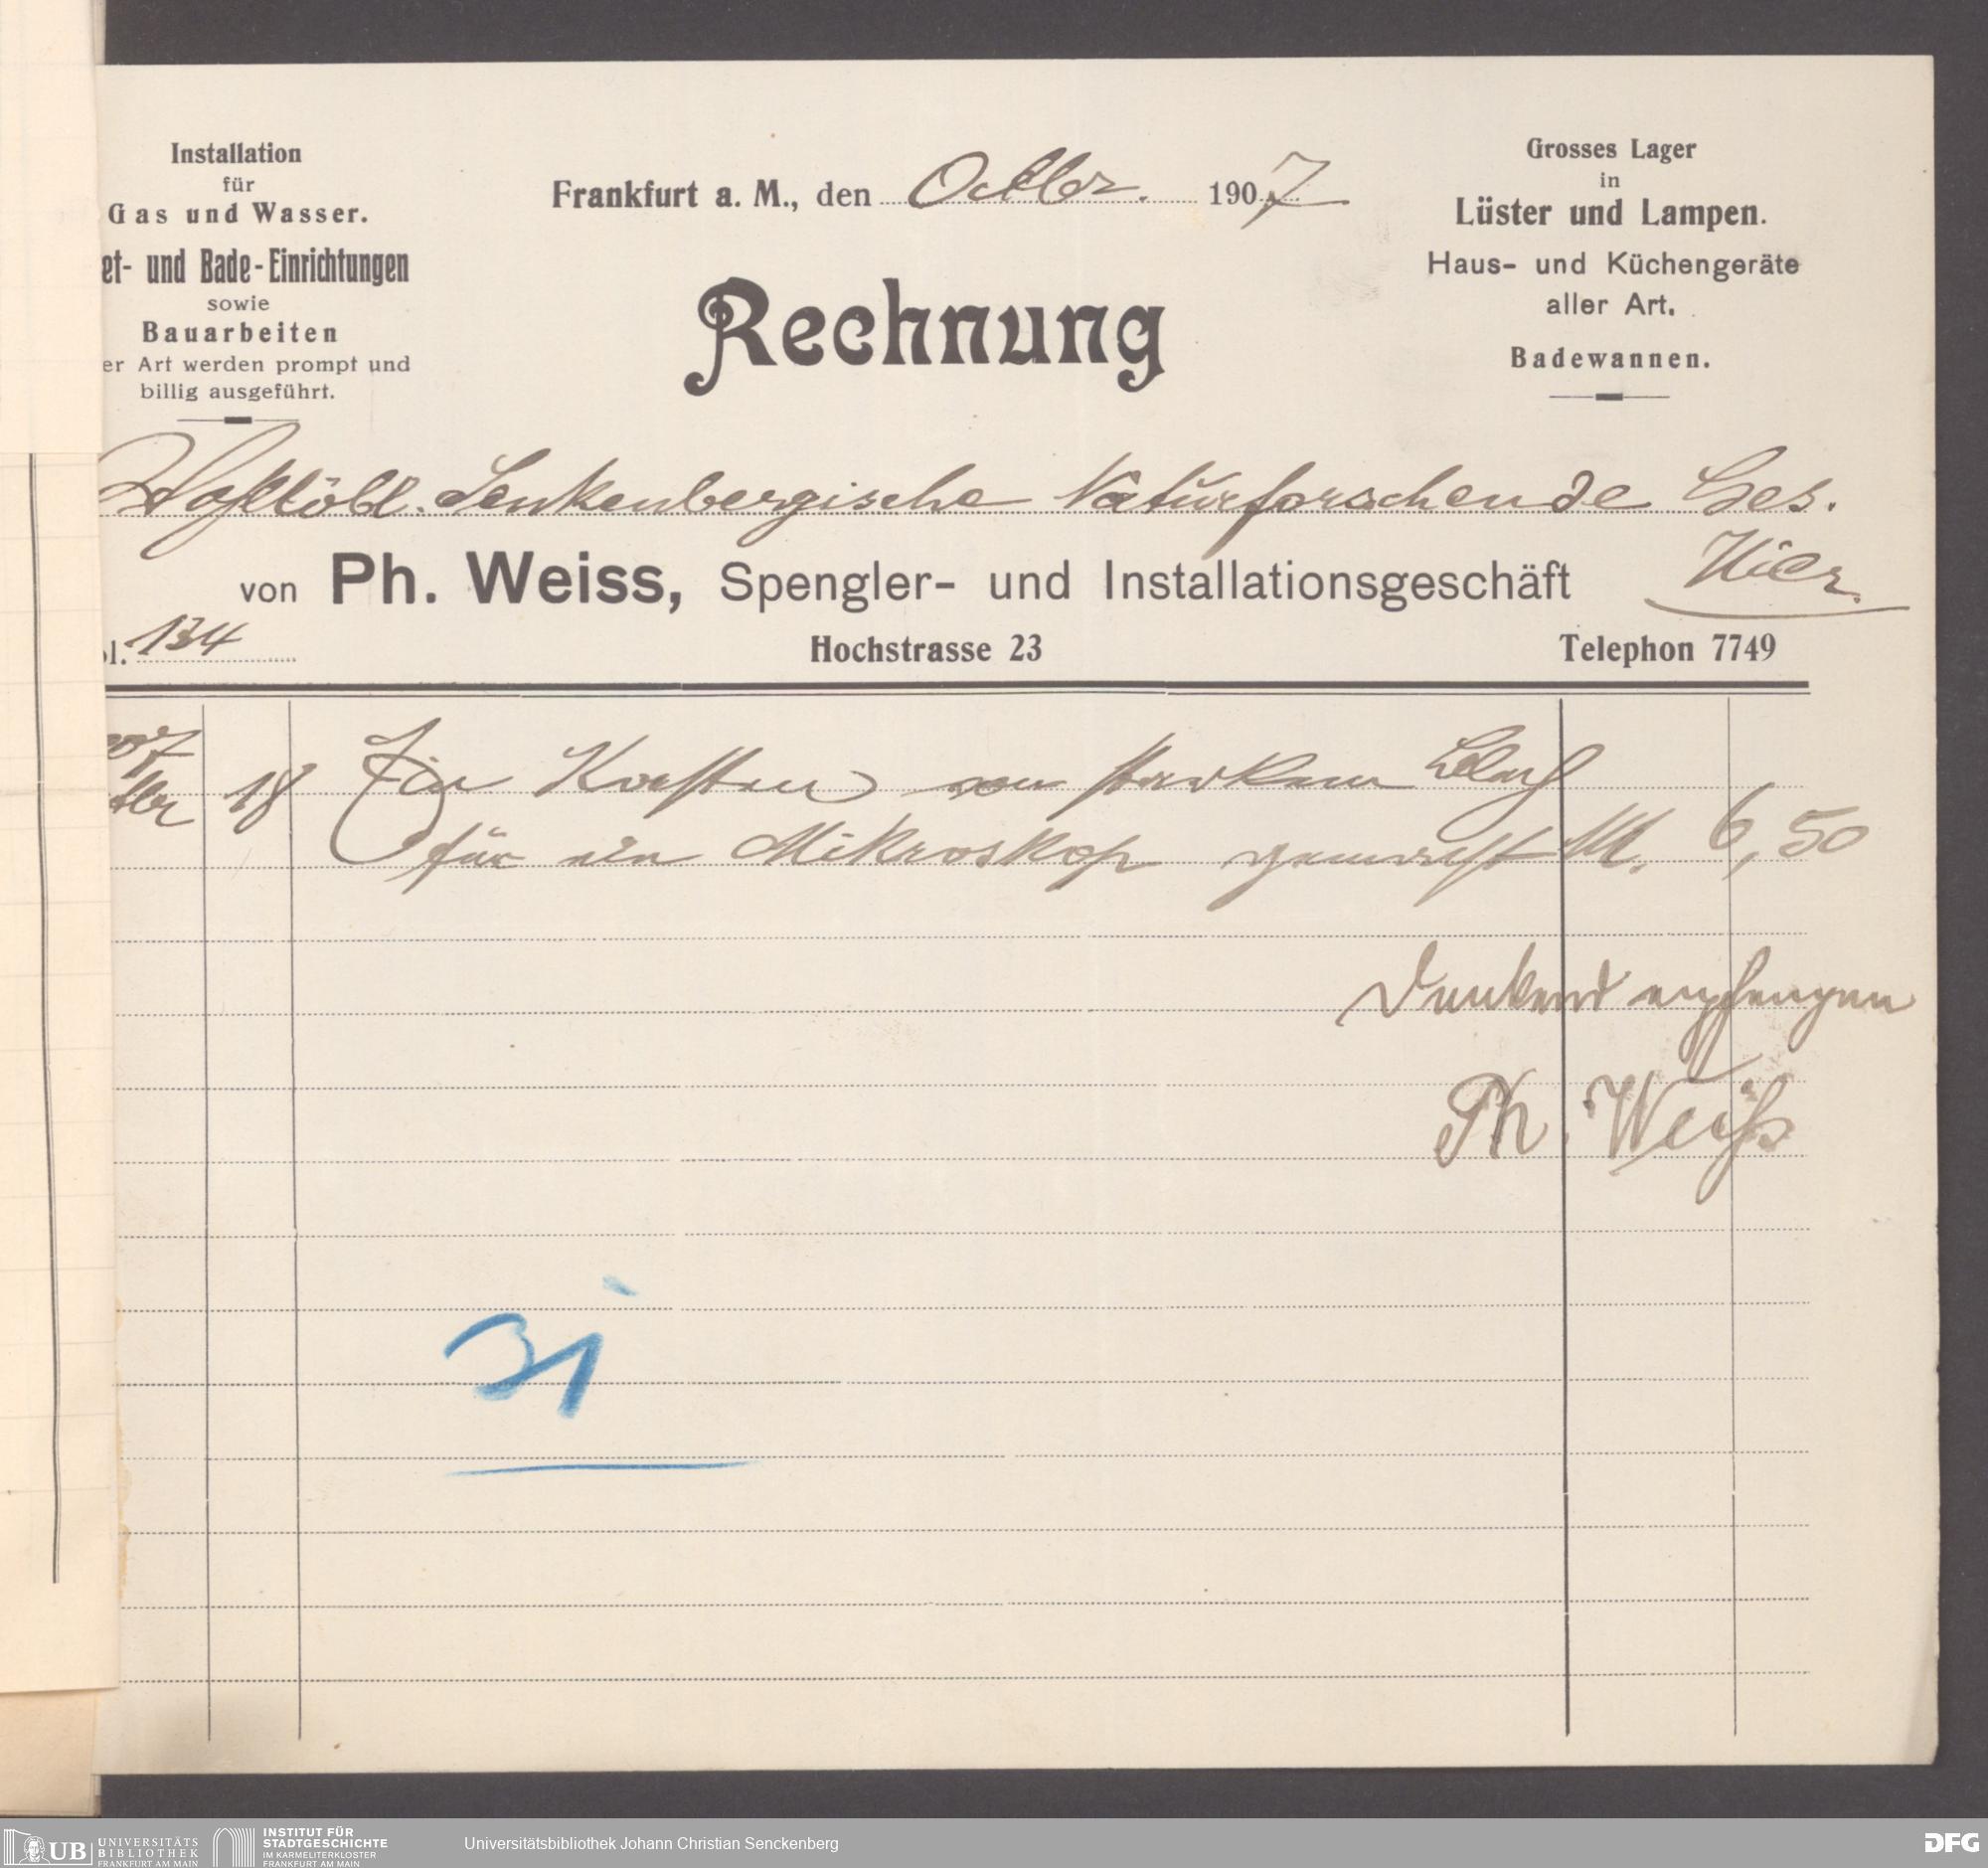 Installation
für
Gas und Wasser.
et- und Bade-Einrichtungen
sowie
Bauarbeiten
er Art werden prompt und
billig ausgeführt.
Frankfurt a. M., den Octbr. 1907
Rechnung
Grosses Lager
in
Lüster und Lampen.
Haus- und Küchengeräte
aller Art.
Badewannen.
Senkenbergische Naturforschende Ges.
von Ph. Weiss, Spengler- und Installationsgeschäft Hier.
ol. 134
Hochstrasse 23
Telephon 7749
907
tbr 18 Ein Kasten von starkem Blech
für ein Mikroskop gemacht M. 6,50
Dankend empfangen
Ph. Weiß
31
UB UNIVERSITÄTS
BIBLIOTHEK
FRANKFURT AM MAIN
INSTITUT FÜR
STADTGESCHICHTE
IM KARMELITERKLOSTER
FRANKFURT AM MAIN
Universitätsbibliothek Johann Christian Senckenberg
DFG